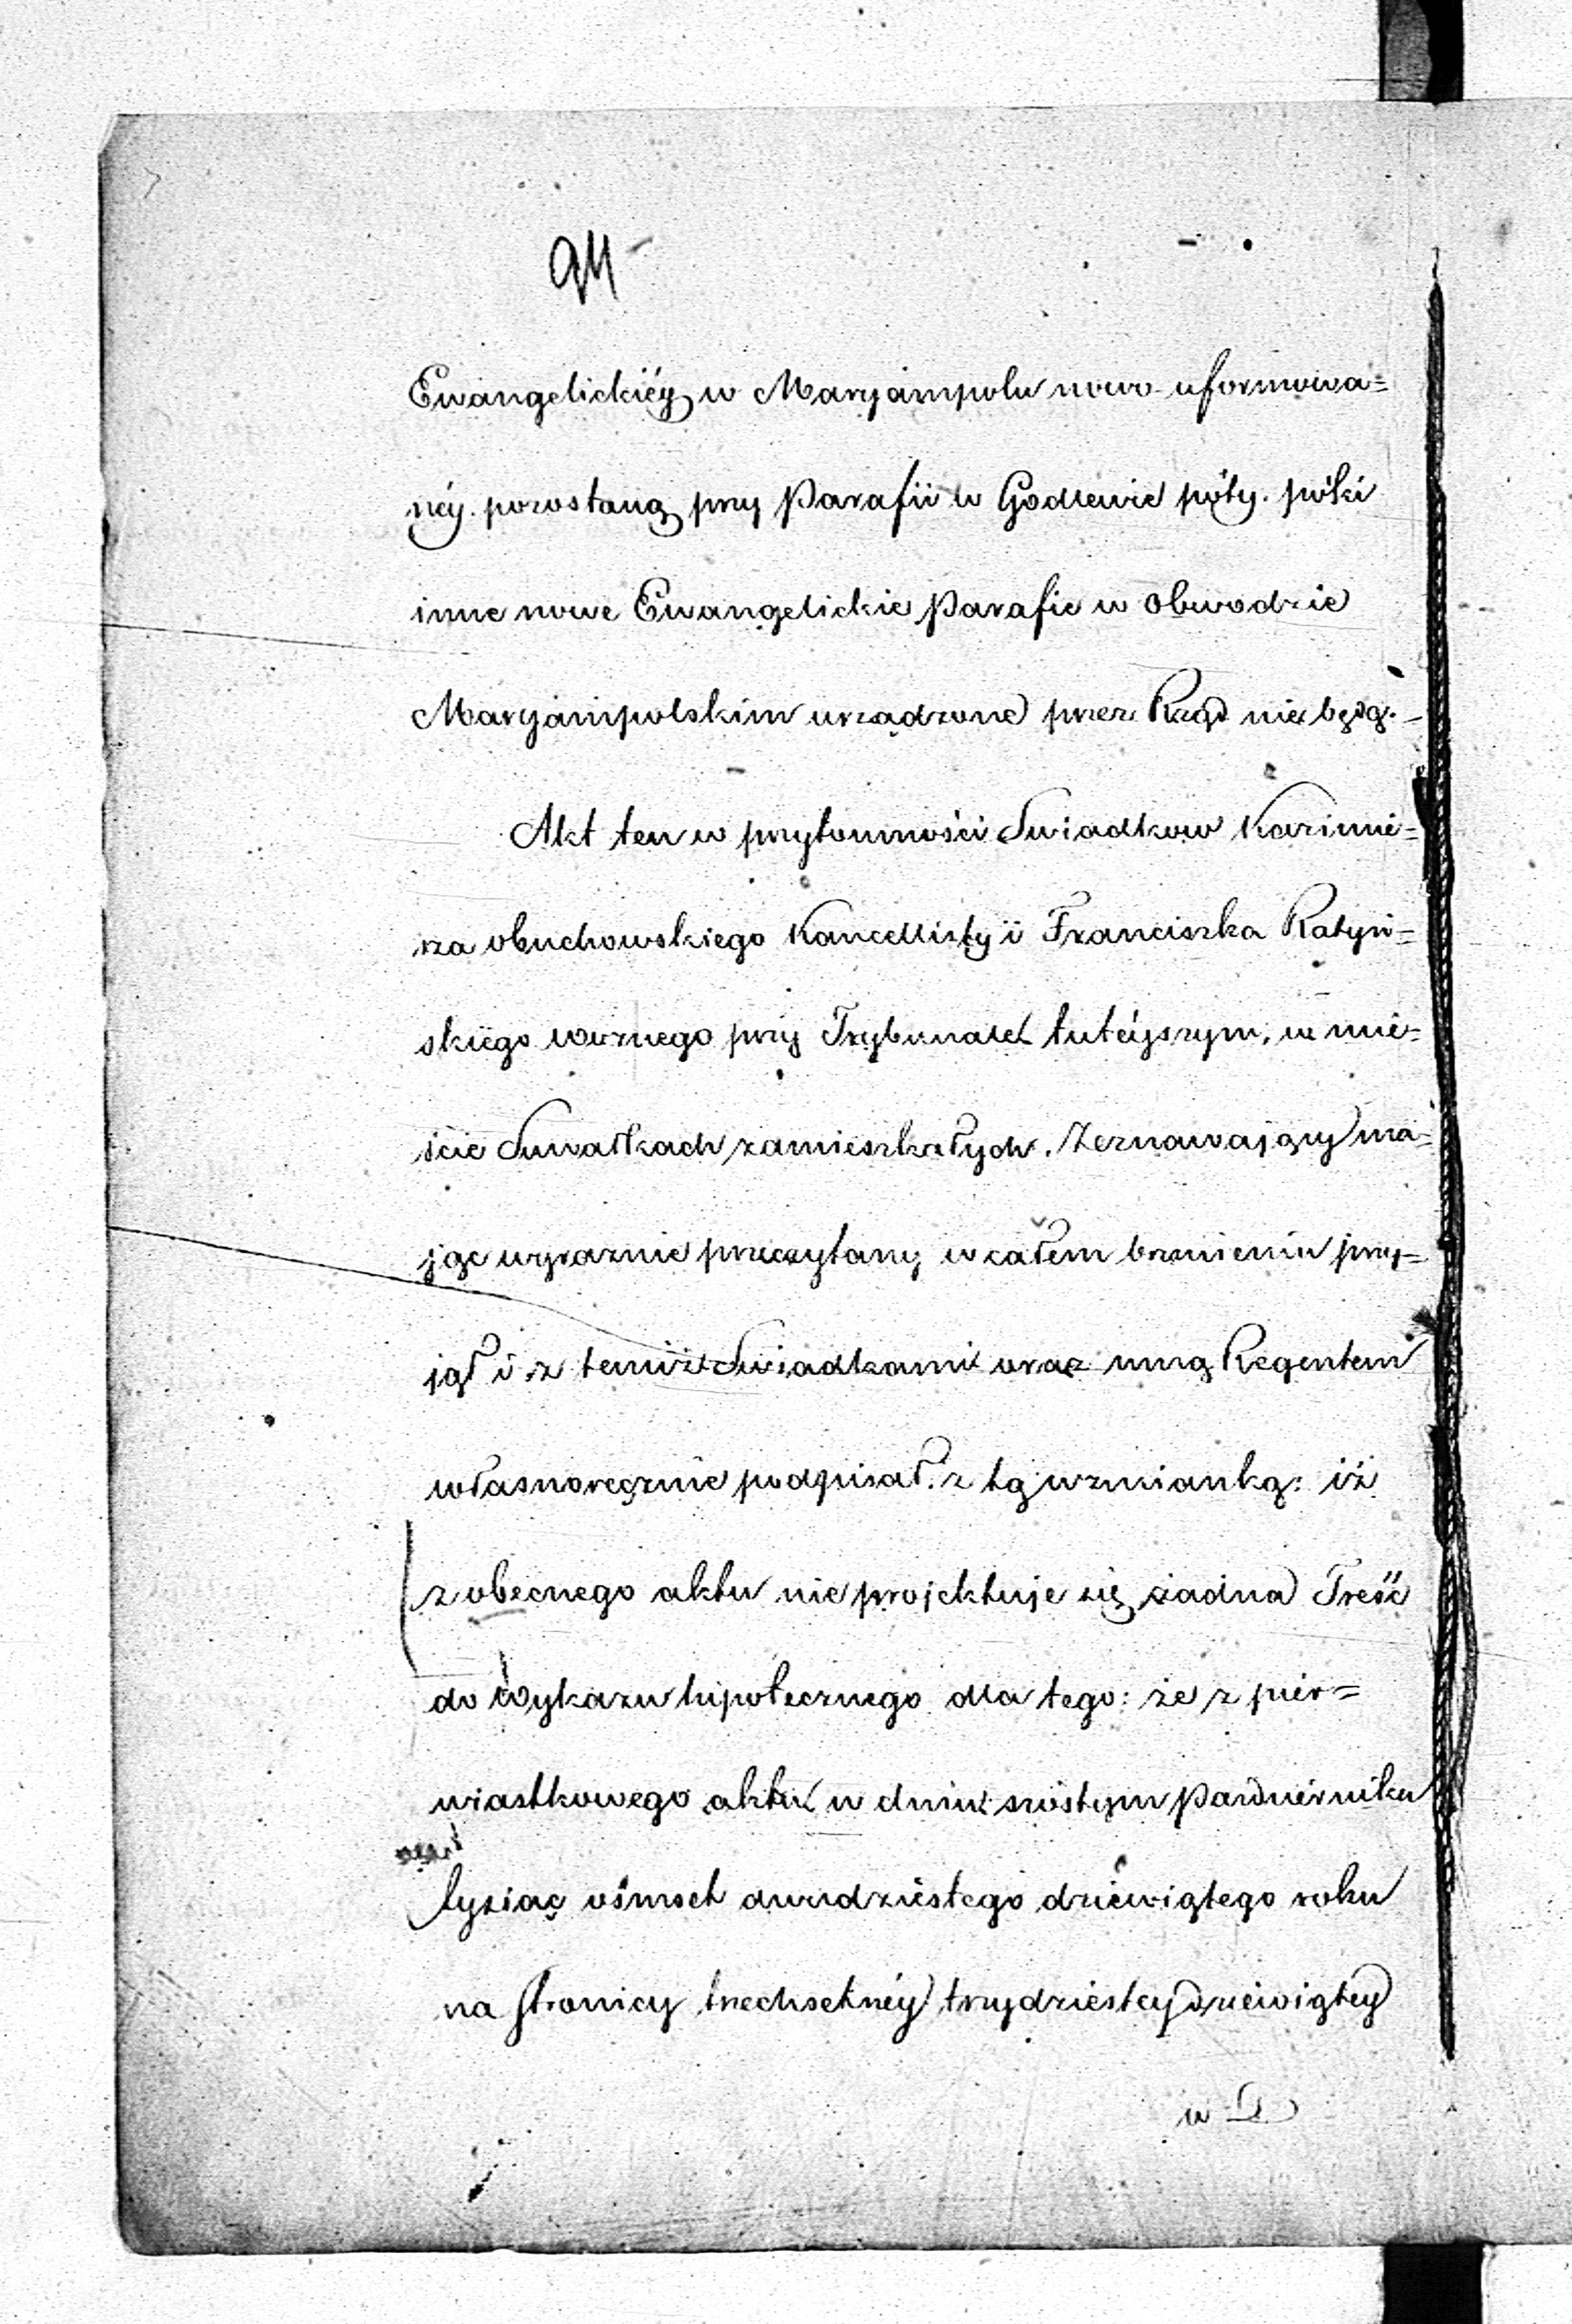 94
Ewangelickiéy w Maryampolu nowo uformowa=
néy pozostaną przy Parafii w Godlewie póty. póki
inne nowe Ewangelickie Parafie w Obwodzie
Maryampolskim urządzone przez Rząd nie będą.
Akt ten w przytomności Swiadkow Kazimie=
rza Obuchowskiego Kancellisty i Franciszka Ratyń=
skiego woznego przy Trybunale tutéyszym, w mie=
ście Suwałkach zamieszkałych. Zeznawający ma=
jąc wyraznie przeczytany w całem brzmieniu przy=
jął i z temiż Swiadkami oraz mną Regentem
własnoręcznie podpisał. z tą wzmianką: iż
z obecnego aktu nie projektuje się żadna Treść
do Wykazu hipotecznego dla tego: że z pier=
wiastkowego aktu w dniu szóstym Paździérnika
tysiąc ośmset dwudziestego dziewiątego roku
na stronicy trzechsetnéy trzydziestey dziewiątey
w